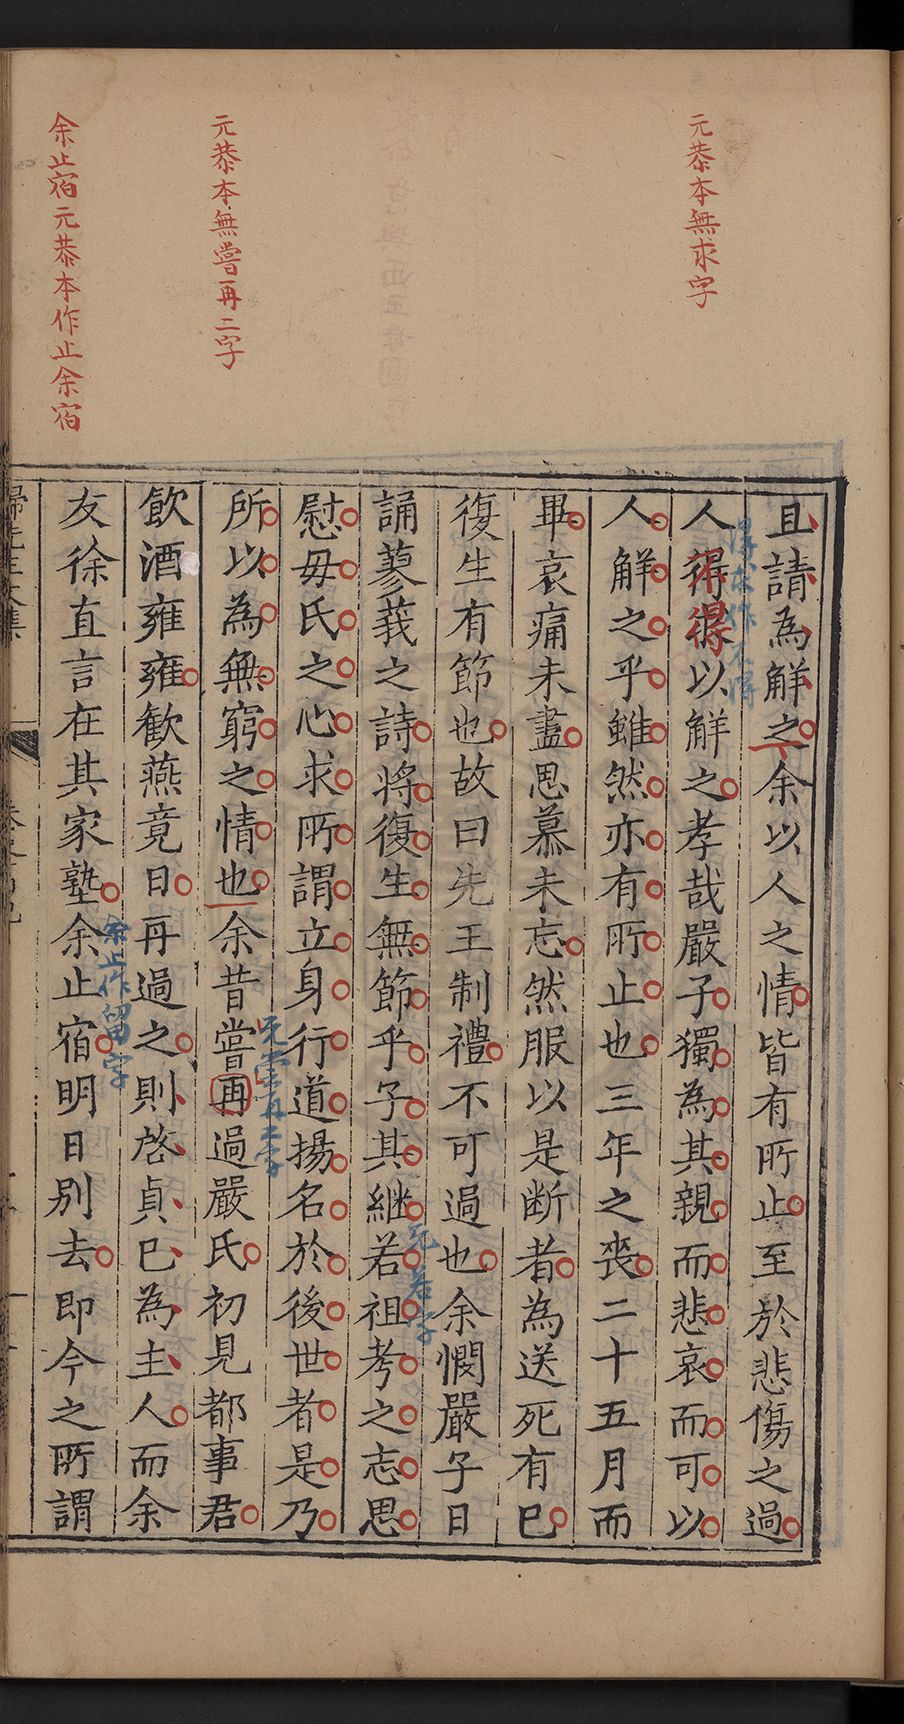 元恭本無求字
元恭本無嘗再二字
余止宿元恭本作止余宿
且請為解之余以人之情皆有所止至於悲傷之過
人得以解之孝哉嚴子獨為其親而悲哀而可以
人解之乎雖然亦有所止也三年之喪二十五月而
畢哀痛未盡思慕未忘然服以是断者為送死有已
復生有節也故曰先王制禮不可過也余憫嚴子日
誦蓼莪之詩將復生無節乎子其継若祖考之志思
慰毋氏之心求所謂立身行道揚名於後世者是乃
所以為無窮之情也余昔嘗再過嚴氏初見都事君
飲酒雍雍歡燕竟日再過之則啓貞已為主人而余
友徐直言在其家塾余止宿明日别去即今之所謂
得求作不得
元若字
元嘗再二字
余止作留字